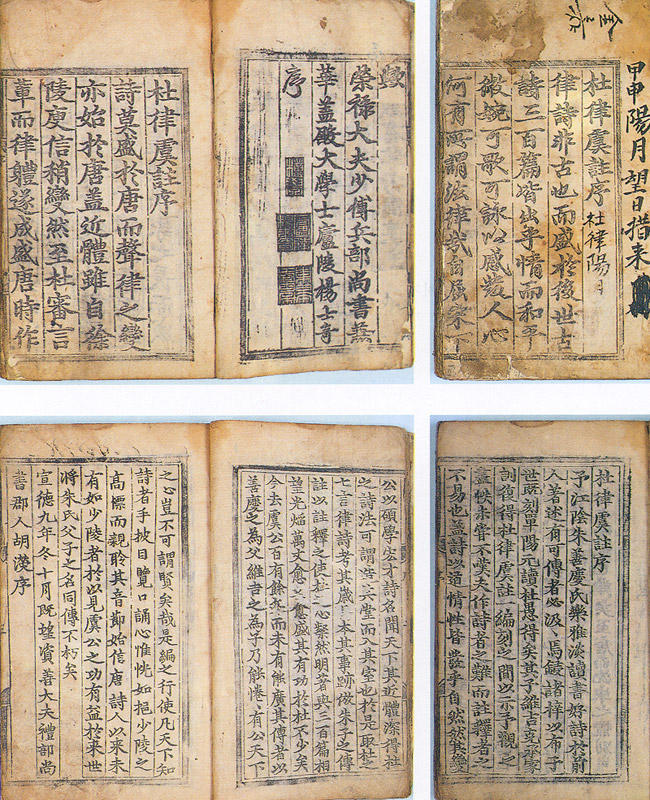 甲申陽月望日措来
杜律虞註序 杜律陽月
律詩非古也而盛於後世古
詩三百篇皆出乎情而和平
微婉可歌可詠以感發人心
何有所謂法律哉自屈宋下
變
榮禄大夫少傅兵部尚書兼
華盖殿大學士廬陵楊士竒
序
杜律虞註序
詩莫盛於唐而聲律之變
亦始於唐盖近體雖自徐
陵庾信稍變然至杜審言
軰而律體遂成盛唐時作
杜律虞註序
予江陰朱善慶氏樂雅淡讀書好詩於前
人著述有可傳者必汲〻焉鋟諸梓以布于
世既刻單陽元讀杜愚得矣其子維吉克承家
訓復得杜律虞註一編刻之間以示予觀之
盡帙未甞不嘆夫作詩者之難而註釋者之
不易也盖詩以道情性皆發乎自然然其變
公以碩學宏才詩名聞天下其近體深得杜
之詩法可謂堂而入其室也於是取杜
七言律詩考其歲月本其事跡倣朱子之傳
註以註釋之使杜之心粲然明著與三百篇相
望光焰萬丈愈久愈盛其有功於杜不少矣
今去虞公百有餘年而未有能廣其傳者以
善慶之為父維吉之為子乃能惓〻有公天下
之心豈不可謂賢矣哉是編之行使凡天下知
詩者手披目覽口誦心惟恍如挹少陵之
髙標而親聆其音節始信唐詩人以來未
有如少陵者於以見虞公之功有益於來世
將朱氏父子之名同傳不朽矣
宣德九年冬十月既望資善大夫禮部尚
書郡人胡濙序